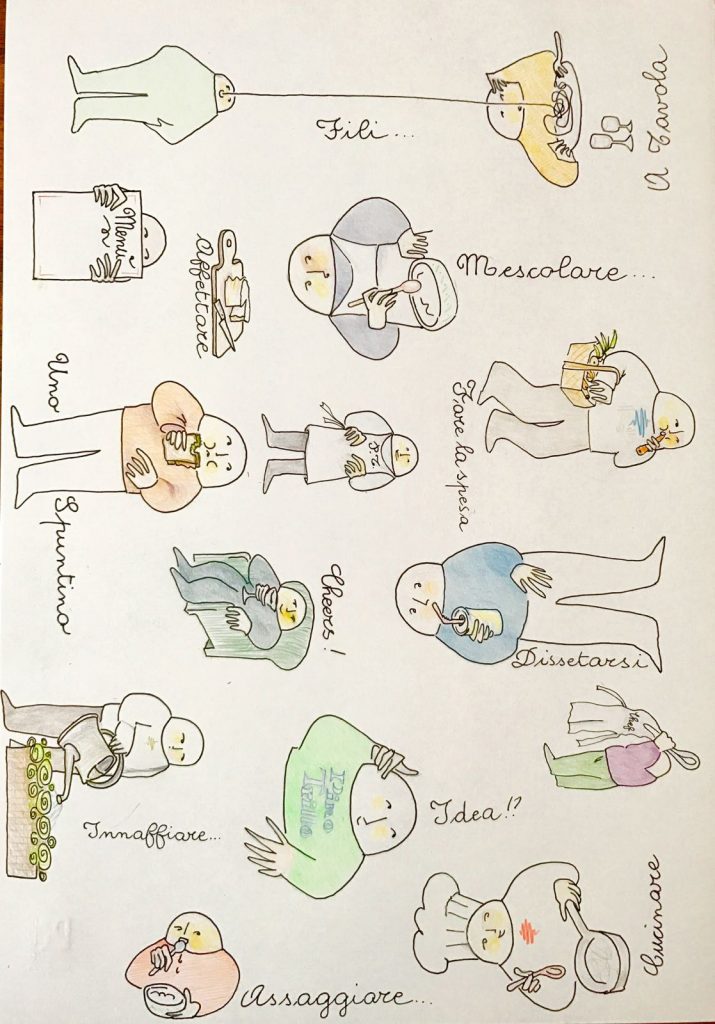 A Tavola
Fili...
Menù
Affettare
Mescolare...
Uno
Spuntino
Fare la spesa
Cheers!
Dissetarsi
Chef
Innaffiare...
Primo
Idea!?
Cucinare
Assaggiare...